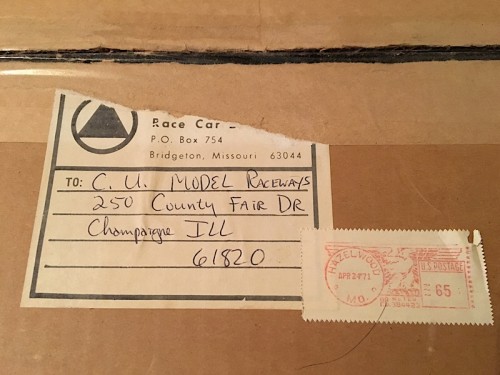 Race Car
P.O. Box 754
Bridgeton, Missouri 63044
TO: C. U. MODEL RACEWAYS
250 County Fair Dr
Champaigne ILL
61820
HAZELWOOD
APR 24 '71
MO.
U.S. POSTAGE
65